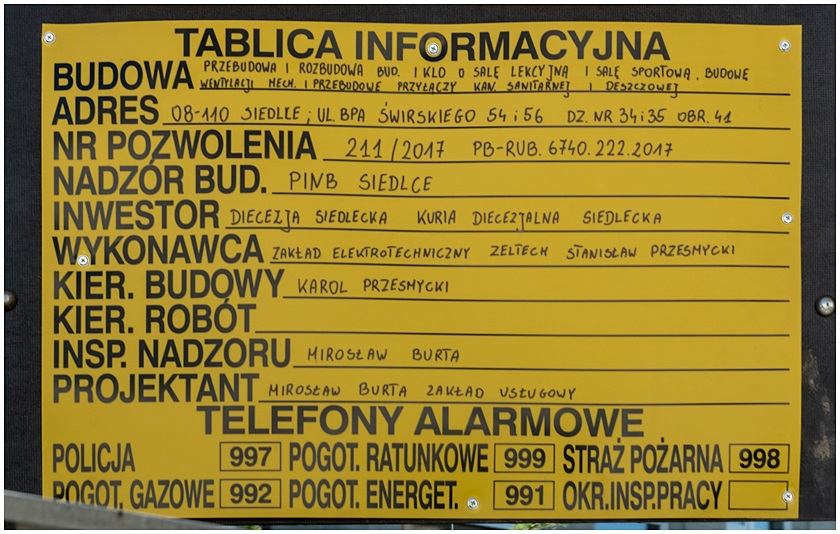 TABLICA INFORMACYJNA
BUDOWA PRZEBUDOWA I ROZBUDOWA BUD. I KLO O SALĘ LEKCYJNĄ I SALĘ SPORTOWĄ, BUDOWĘ
WENTYLACJI MECH. I PRZEBUDOWĘ PRZYŁĄCZY KAN. SANITARNEJ I DESZCZOWEJ
ADRES 08-110 SIEDLCE; UL. BPA ŚWIRSKIEGO 54 i 56 DZ. NR 34 i 35 OBR. 41
NR POZWOLENIA 211/2017 PB-RUB. 6740.222.2017
NADZÓR BUD. PINB SIEDLCE
INWESTOR DIECEZJA SIEDLECKA KURIA DIECEZJALNA SIEDLECKA
WYKONAWCA ZAKŁAD ELEKTROTECHNICZNY ZELTECH STANISŁAW PRZESMYCKI
KIER. BUDOWY KAROL PRZESMYCKI
KIER. ROBÓT
INSP. NADZORU MIROSŁAW BURTA
PROJEKTANT MIROSŁAW BURTA ZAKŁAD USŁUGOWY
TELEFONY ALARMOWE
POLICJA 997 POGOT. RATUNKOWE 999 STRAŻ POŻARNA 998
POGOT. GAZOWE 992 POGOT. ENERGET. 991 OKR.INSP.PRACY